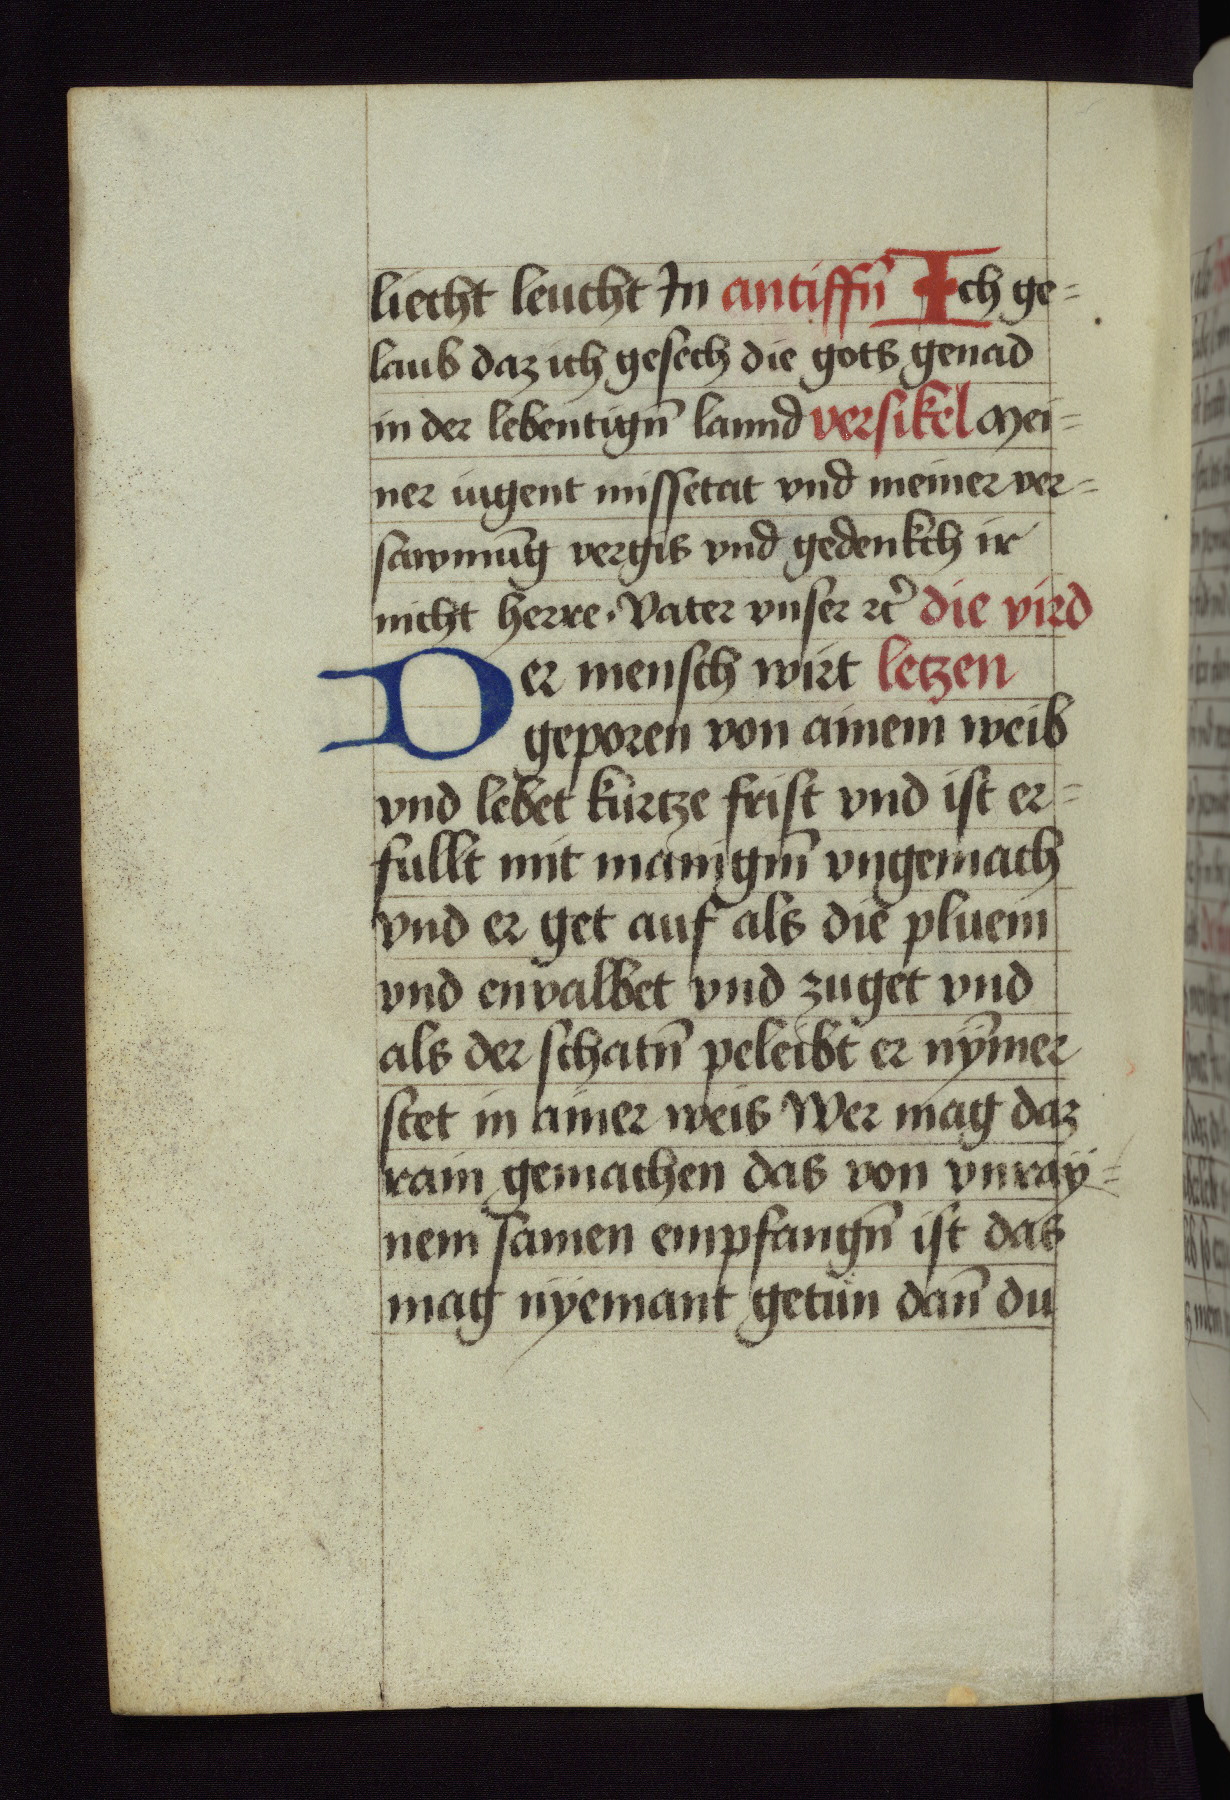 liecht leucht In antiffn̄ Ich ge=
laub daz ich gesech die gots genad
in der lebentign̄ lannd versikel Mei=
ner iugent missetat vnd meiner ver=
sawmūg vergis vnd gedenkch ir
nicht herre. Vater vnser ꝛc̄ die vird
Der mensch wirt letzen
geporen von ainem weib
vnd lebet kurtze frist vnd ist er=
fullt mit manigm̄ vngemach
vnd er get auf als die pluem
vnd envalbet vnd zuget vnd
als der schatn̄ peleibt er nȳmer
stet in ainer weis Wer mag daz
rain gemachen das von vnray=
nem samen empfangn̄ ist das
mag nyemant getun dan̄ du